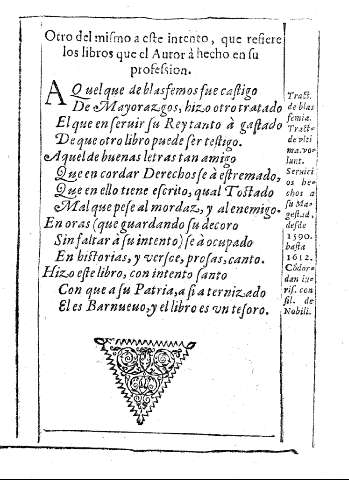 Otro del mismo a este intento, que refiere
los libros que el Autor à hecho en su
profession.
AQuel que de blasfemos fue castigo
De Mayorazgos, hizo otro tratado
El que en seruir su Rey tanto à gastado
De que otro libro puede ser testigo.
Aquel de buenas letras tan amigo
Que en cordar Derechos se à estremado,
Que en ello tiene escrito, qual Tostado
Mal que pese al mordaz, y al enemigo.
En oras (que guardando su decoro
Sin faltar à su intento) se à ocupado
En historias, y versos, prosas, canto.
Hizo este libro, con intento santo
Con que a su Patria, a si a ternizado
El es Barnueuo, y el libro es vn tesoro.
Tract.
de blas
femia.
Tract-
de vlti
ma vo-
lunt.
Seruici
os he-
chos a
su Ma-
gestad,
desde
1590.
hasta
1612.
Côcor-
dan iu-
ris. con
sil. de
Nobili.